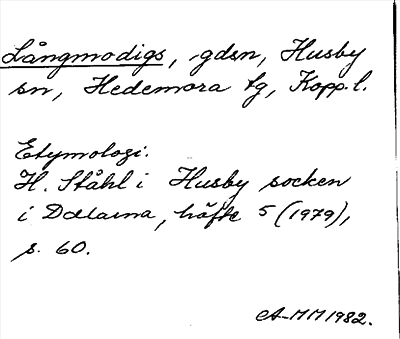 Långmodigs, gdsn, Husby
sn, Hedemora tg, Kopp. l.
Etymologi.
H. Ståhl i Husby socken
i Dalarna, häfte 5 (1979),
s. 60.
A-MM 1982.